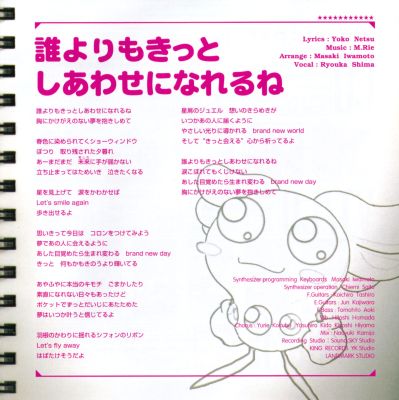 ★★★★★★★★★★★
誰よりもきっと
しあわせになれるね
Lyrics : Yoko Netsu
Music : M.Rie
Arrange : Masaki Iwamoto
Vocal : Ryouka Shima
誰よりもきっとしあわせになれるね
胸にかけがえのない夢を抱きしめて
春色に染められてくショーウィンドウ
ぽつり 取り残された夕暮れ
あーまだまだ 未来に手が届かない
立ち止まってはためいき 泣きたくなる
星を見上げて 涙をかわかせば
Let's smile again
歩き出せるよ
思いきって今日は コロンをつけてみよう
夢であの人に会えるように
あした目覚めたら生まれ変わる brand new day
きっと 何もかもきのうより輝いてる
あやふやに本当のキモチ ごまかしたり
素直になれない日々もあったけど
ポケットでずっとだいじにあたためた
夢はいつか叶うと信じてるよ
羽根のかわりに揺れるシフォンのリボン
Let's fly away
はばたけそうだよ
星屑のジュエル 想いのきらめきが
いつかあの人に届くように
やさしい光りに導かれる brand new world
そして"きっと会える"心から祈ってるよ
誰よりもきっとしあわせになれるね
涙こぼれてもくじけない
あした目覚めたら生まれ変わる brand new day
胸にかけがえのない夢を抱きしめて
Synthesizer programming Keyboards Masaki Iwamoto
Synthesizer operation : Chiemi Saito
F.Guitars : Koichiro Tashiro
E.Guitars : Jun Kajiwara
E.Bass : Tomohito Aoki
Hitoshi Hamada
Chorus : Yurie Kokubu Yasuhiro Kido Kiyoshi Hiyama
Mix : Naoyuki Kamijo
Recording Studio : Sound SKY Studio
KING RECORDS YK Studio
LANDMARK STUDIO